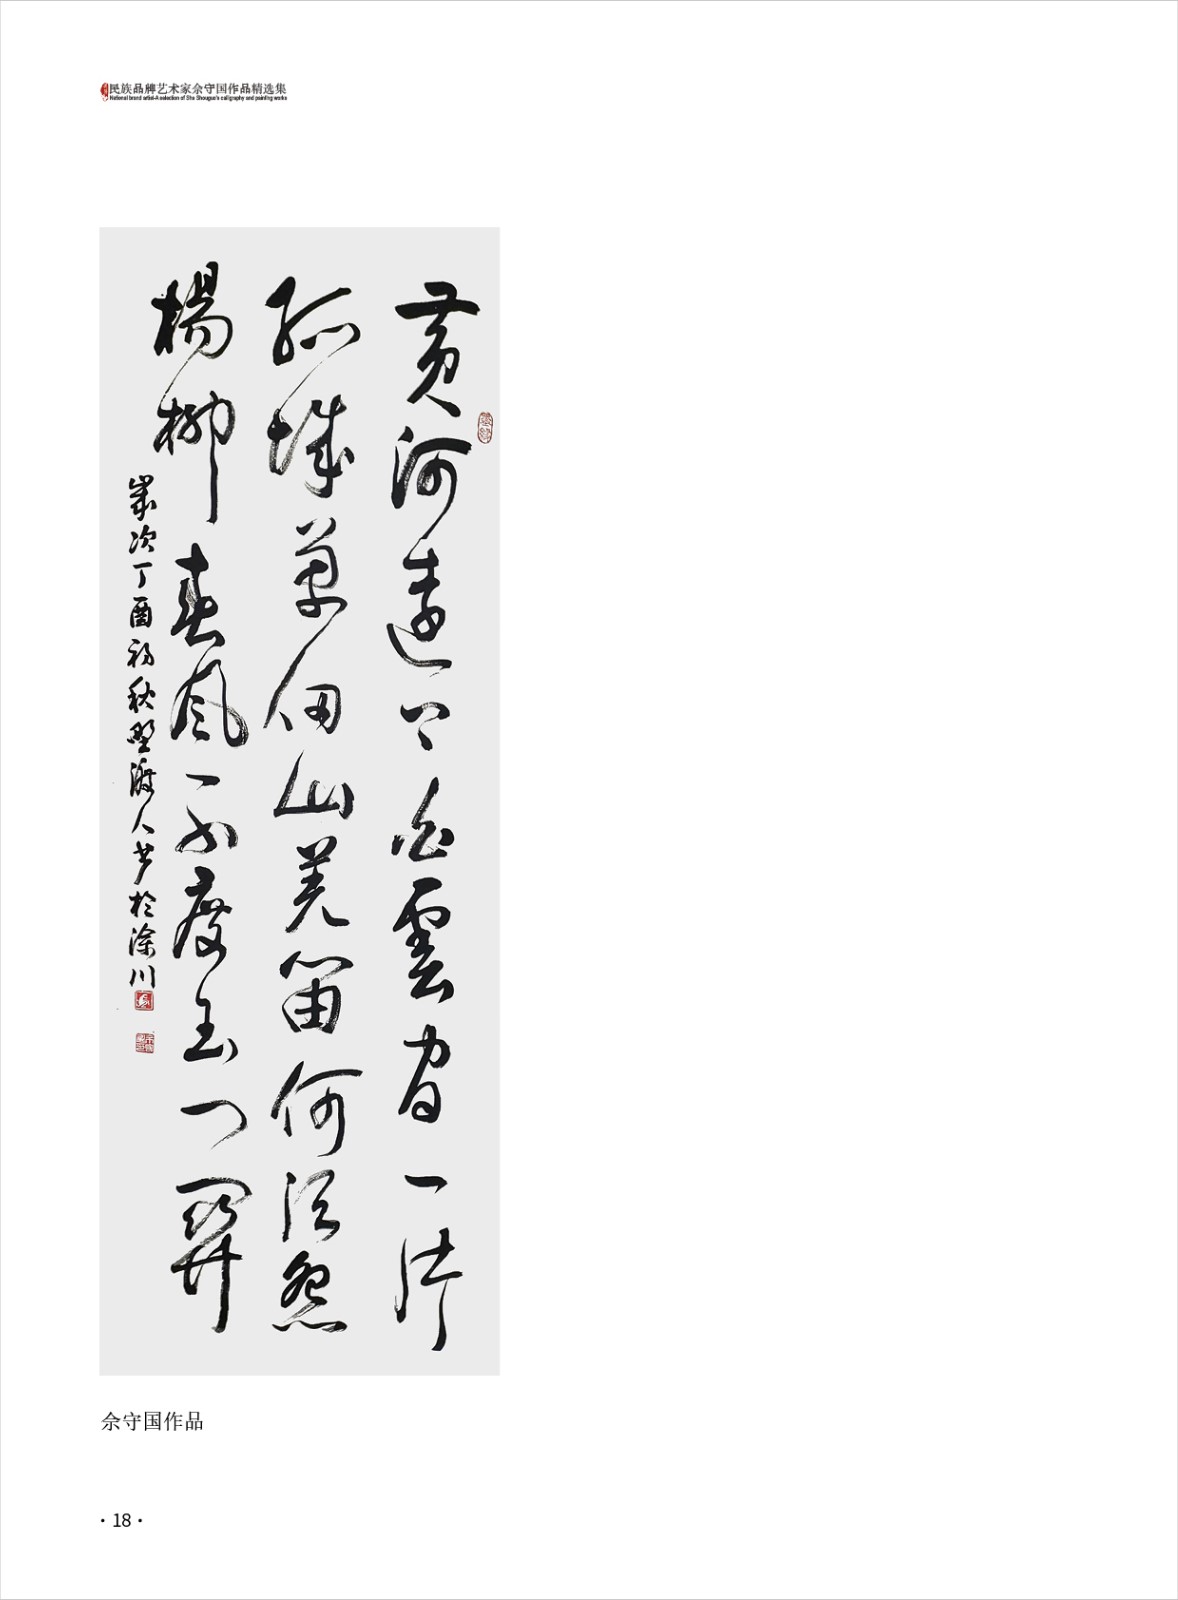 民族品牌艺术家佘守国作品精选集
National brand artist-A selection of She Shouguo's caligraphy and painting works
黄河遠上白雲間一片
孤城萬仞山羌笛何須怨
楊柳春風不度玉門關
歲次丁酉初秋野渡人書於川
佘守国作品
·18·